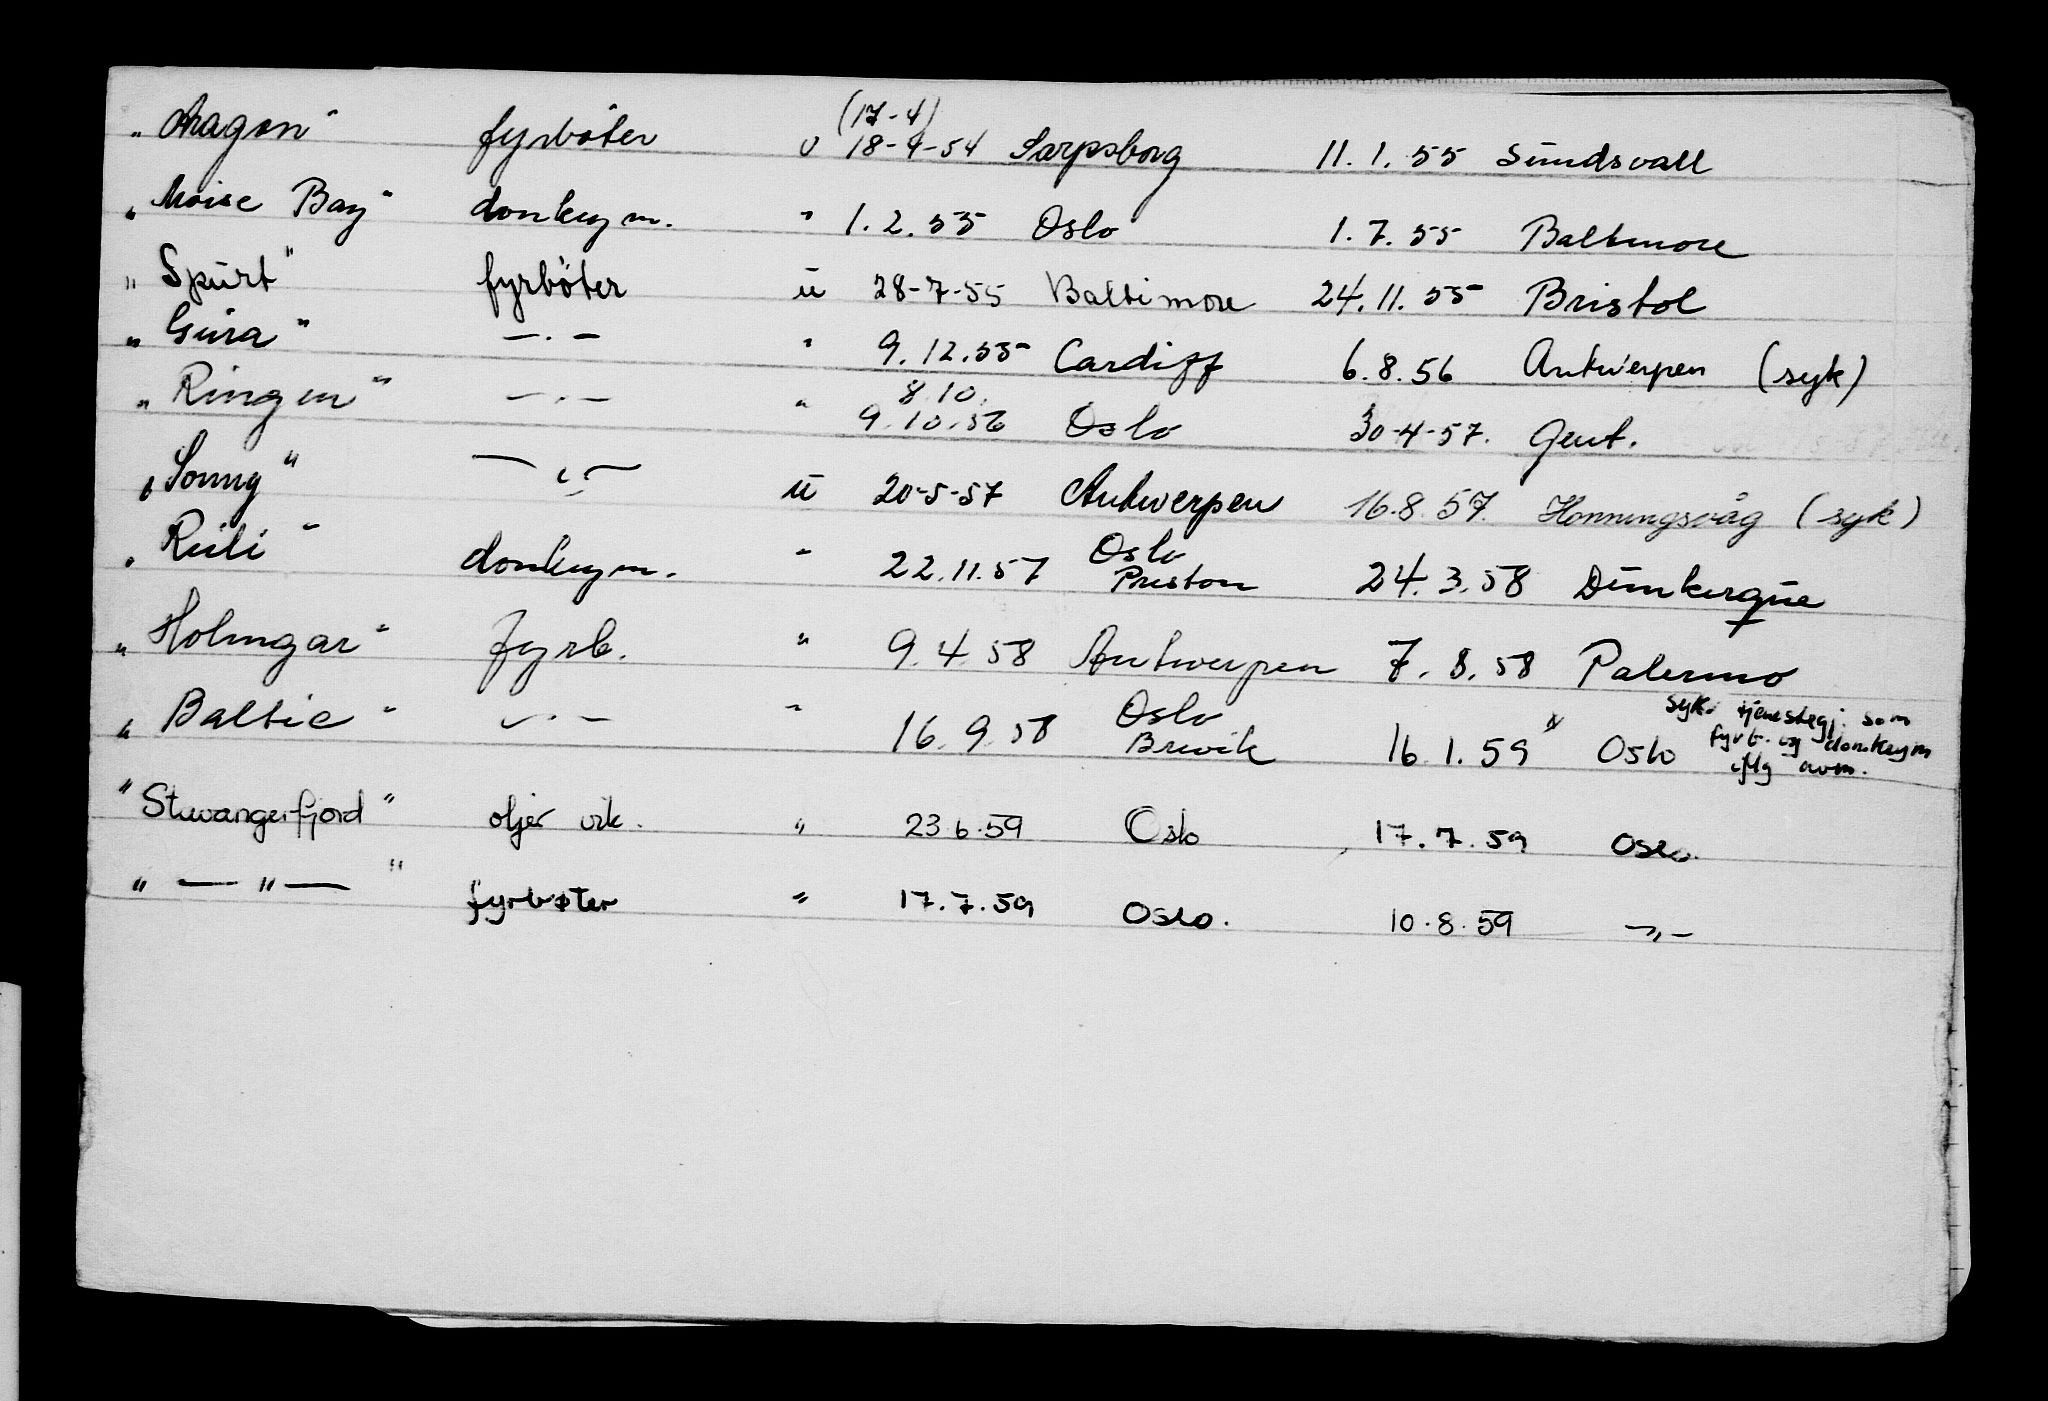 (17-4)
"Aragon" fyrbøter u 18-4-54 Sarpsborg 11.1.55 Sundsvall
"Moise Bay" donkeym. " 1.2.55 Oslo 1.7.55 Baltimore
"Spurt" fyrbøter u 28-7-55 Baltimore 24.11.55 Bristol
"Gura" —.— " 9.12.55 Cardiff 6.8.56 Antwerpen (syk)
8.10.
"Ringen" —.— " 9.10.56 Oslo 30-4-57. Gent.
"Sonny" —"— u 20-5-57 Antwerpen 16.8.57. Honningsvåg (syk)
Oslo
"Ruli" donkeym. " 22.11.57 Preston 24.3.58 Dunkerque
"Holmgar" fyrb. " 9.4.58 Antwerpen 7.8.58 Palermo
Oslo syk. tjenestegj. som
"Baltic" —.— " 16.9.58 Brevik 16.1.59 x Oslo fyrb. og donkeym
iflg avm.
"Stavangerfjord" oljer vik. " 23.6.59 Oslo 17.7.59 Oslo.
" — " — " fyrbøter " 17.7.59 Oslo. 10.8.59 —"—